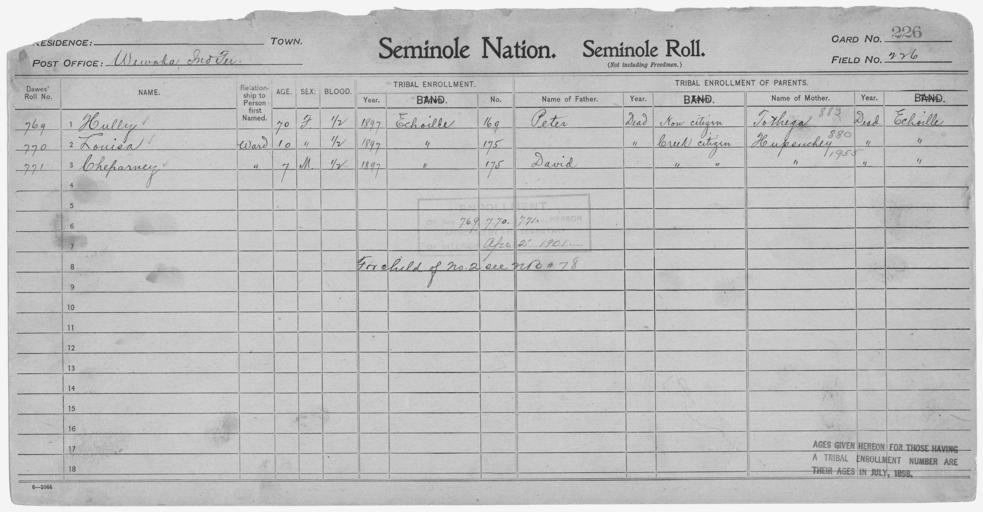 RESIDENCE: TOWN.
POST OFFICE: Wewoka, Ind Ter.
Seminole Nation. Seminole Roll.
(Not including Freedmen.)
CARD NO. 226
FIELD NO. 226
Dawes' Roll No. NAME. Relationship to Person first Named. AGE. SEX. BLOOD. TRIBAL ENROLLMENT. TRIBAL ENROLLMENT OF PARENTS.
Year. BAND. No. Name of Father. Year. BAND. Name of Mother. Year. BAND.
769 1 Hully 70 F 1/2 1897 Echoille 169 Peter Dead Non citizen 883 Dead Echoille
770 2 Louisa Ward 10 " 1/2 1897 " 175 " Creek citizen 880 " "
771 3 Cheparney " 7 M. 1/2 1897 " 175 David " " " 1955 " "
4
5
ENROLLMENT
6 769, 770. 771. HEREON
7 Apr 2 1901
8 For child of No. 2 see NB # 78
9
10
11
12
13
14
15
16
17
18
AGES GIVEN HEREON FOR THOSE HAVING
A TRIBAL ENROLLMENT NUMBER ARE
THEIR AGES IN JULY, 1898.